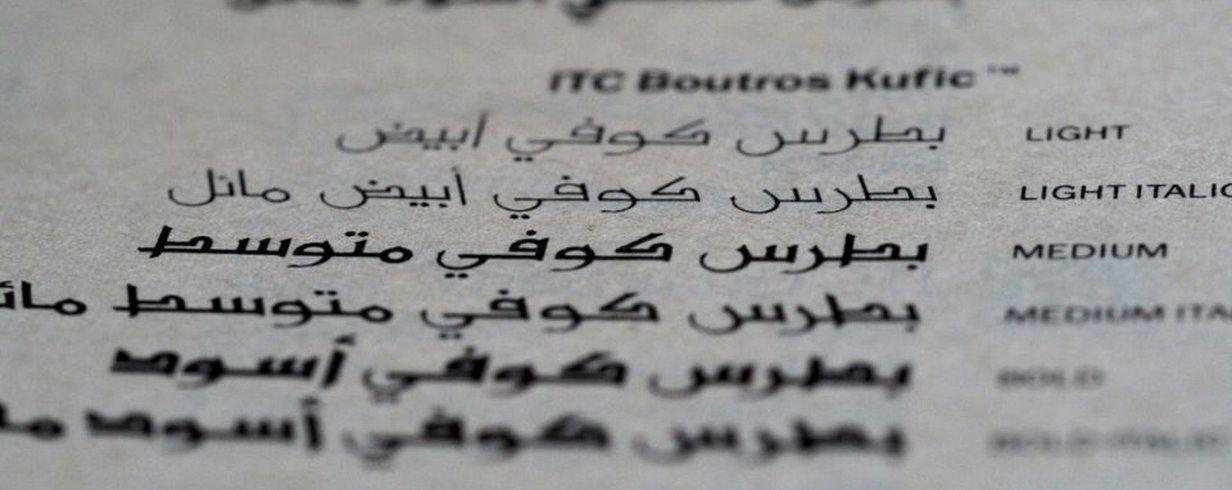 ITC Boutros Kufic™
بطرس كوفي أبيض LIGHT
بطرس كوفي أبيض مائل LIGHT ITALIC
بطرس كوفي متوسط MEDIUM
بطرس كوفي متوسط مائل MEDIUM ITA
بطرس كوفي أسود BOLD
بطرس كوفي أسود BOLD ITALIC